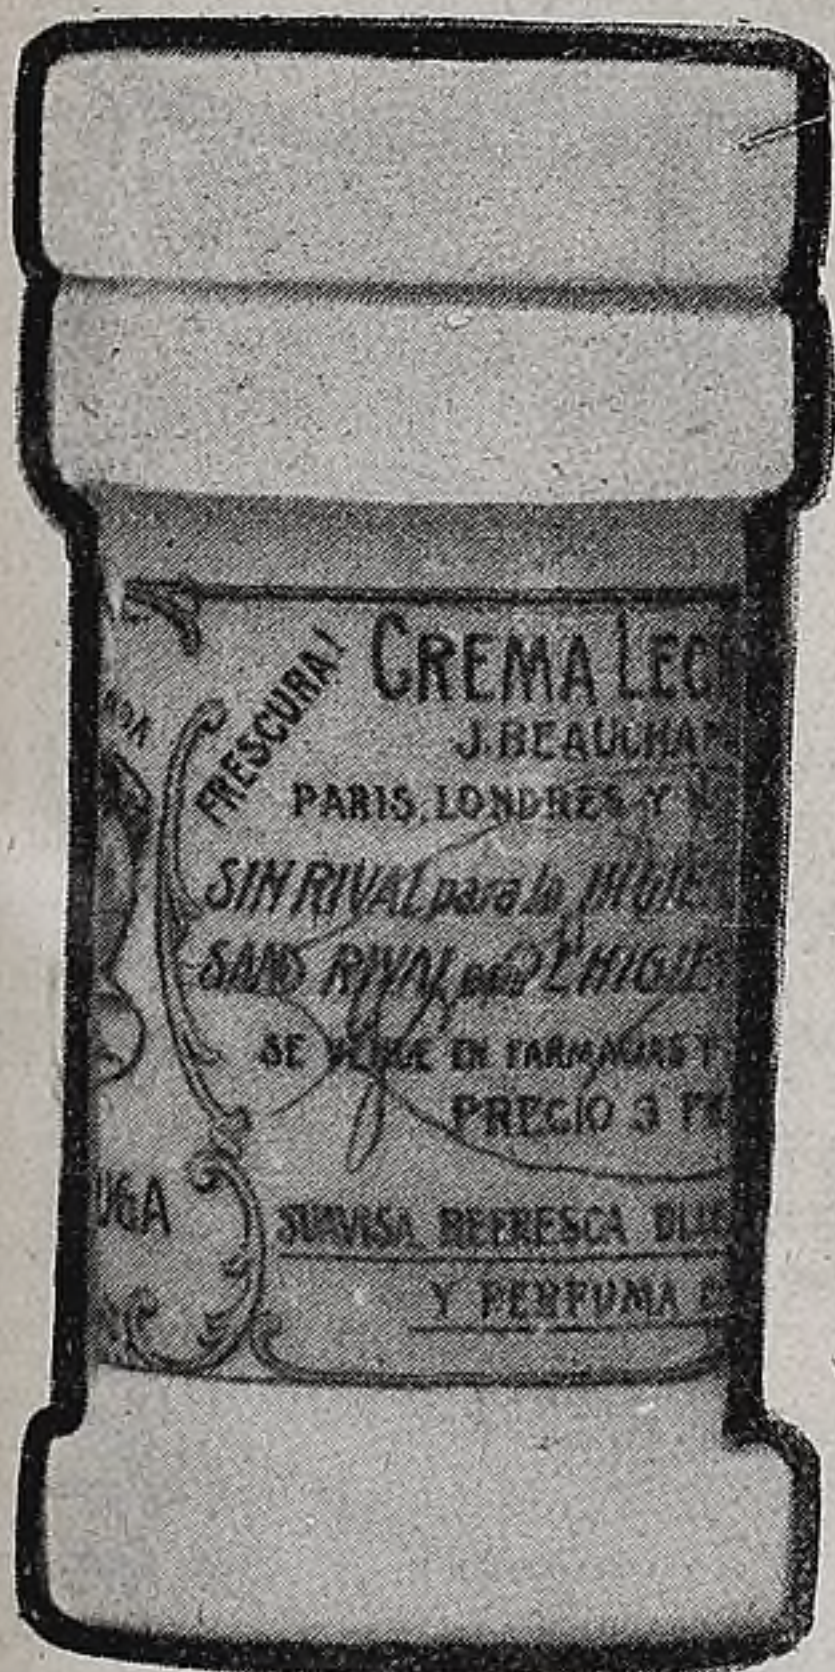 FRESCURA!
CREMA LEC
J. BEAUCHA
PARIS, LONDRES Y
SIN RIVAL para la HIGIE
SANS RIVAL pour L'HIGIE
SE VENDE EN FARMACIAS Y
PRECIO 3 FR
UGA
SUAVISA REFRESCA BLA
Y PERFUMA